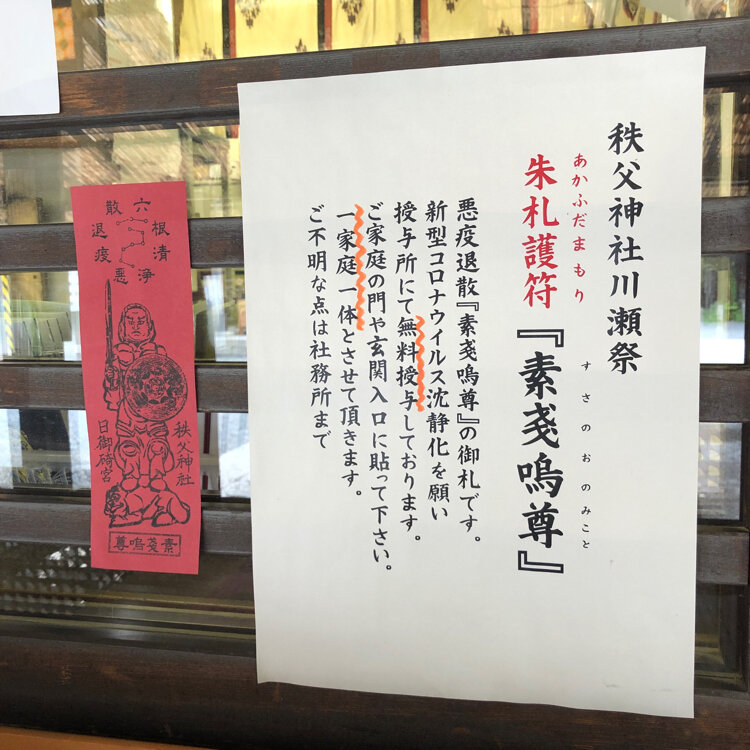 秩父神社川瀬祭
あかふだまもり
朱札護符
すさのおのみこと
『素戔嗚尊』
悪疫退散『素戔嗚尊』の御札です。
新型コロナウイルス沈静化を願い
授与所にて無料授与しております。
ご家庭の門や玄関入口に貼って下さい。
一家庭一体とさせて頂きます。
ご不明な点は社務所まで
六根清浄
悪疫退散
秩父神社
日御碕宮
素戔嗚尊